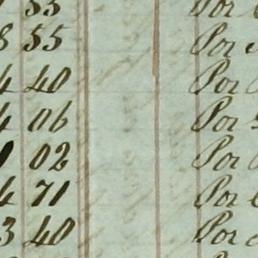 55 Por
8 55 Por
4 40 Por
4 06 Por
02 Por
4 71 Por
3 40 Por